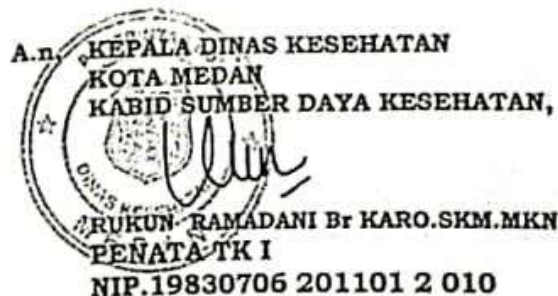 A.n. KEPALA DINAS KESEHATAN
KOTA MEDAN
KABID SUMBER DAYA KESEHATAN,
DINAS
RUKUN RAMADANI Br KARO.SKM.MKN
PENATA TK I
NIP.19830706 201101 2 010